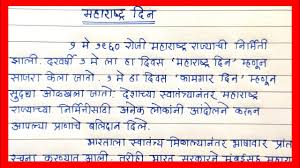 महाराष्ट्र दिन
१ मे १९६० रोजी महाराष्ट्र राज्याची निर्मिती
झाली. दरवर्षी १ मे ला हा दिवस 'महाराष्ट्र दिन' म्हणून
साजरा केला जातो. १ मे हा दिवस 'कामगार दिन' म्हणून
सुद्धा ओळखला जातो. देशाच्या स्वातंत्र्यानंतर महाराष्ट्र
राज्याच्या निर्मितीसाठी अनेक लोकांनी आंदोलने करून
आपल्या प्राणाचे बलिदान दिले.
भारताला स्वातंत्र्य मिळाल्यानंतर भाषावार प्रांत
रचना करण्यात आली. तरीही भारत सरकारने मुंबईसह